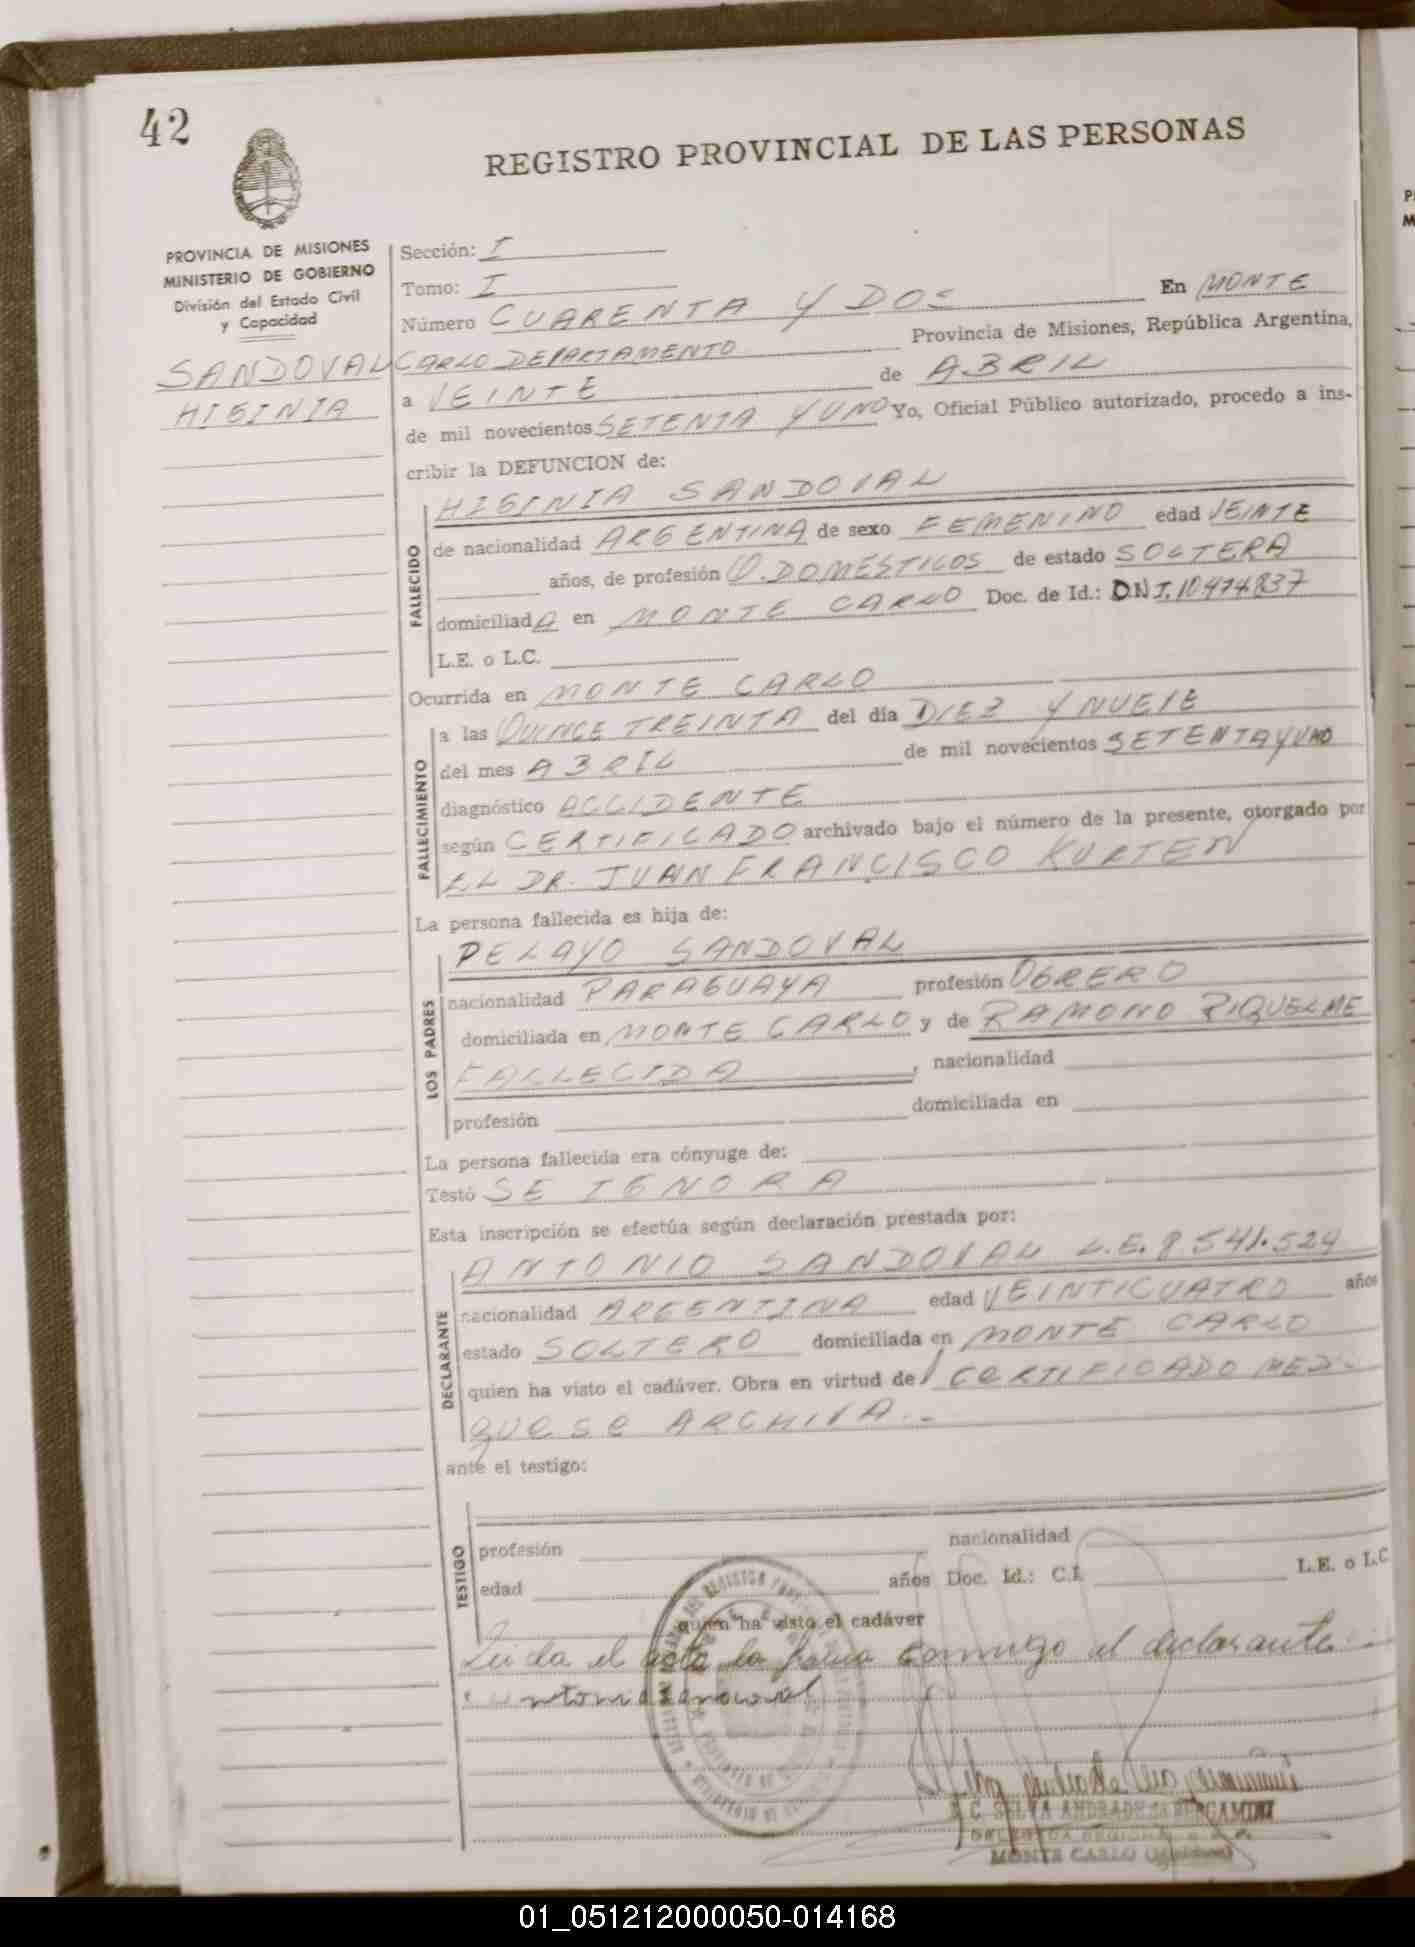 42
REGISTRO PROVINCIAL DE LAS PERSONAS
PROVINCIA DE MISIONES
MINISTERIO DE GOBIERNO
División del Estado Civil
y Capacidad
SANDOVAL
HIGINIA
Sección: I
Tomo: I
Número CUARENTA Y DOS En MONTE
CARLO DEPARTAMENTO Provincia de Misiones, República Argentina,
a VEINTE de ABRIL
de mil novecientos SETENTA Y UNO Yo, Oficial Público autorizado, procedo a ins-
cribir la DEFUNCION de:
FALLECIDO
HIGINIA SANDOVAL
de nacionalidad ARGENTINA de sexo FEMENINO edad VEINTE
años, de profesión Q. DOMESTICOS de estado SOLTERA
domiciliadA en MONTE CARLO Doc. de Id.: DNI. 10474837
L.E. o L.C.
Ocurrida en MONTE CARLO
FALLECIMIENTO
a las QUINCE TREINTA del día DIEZ Y NUEVE
del mes ABRIL de mil novecientos SETENTA Y UNO
diagnóstico ACCIDENTE
según CERTIFICADO archivado bajo el número de la presente, otorgado por
EL DR. JUAN FRANCISCO KURTEN
La persona fallecida es hija de:
LOS PADRES
PELAYO SANDOVAL
nacionalidad PARAGUAYA profesión OBRERO
domiciliada en MONTE CARLO y de RAMONO RIQUELME
FALLECIDA, nacionalidad
profesión domiciliada en
La persona fallecida era cónyuge de:
Testó SE IGNORA
Esta inscripción se efectúa según declaración prestada por:
DECLARANTE
ANTONIO SANDOVAL L.E. 8541.524
nacionalidad ARGENTINA edad VEINTICUATRO años
estado SOLTERO domiciliada en MONTE CARLO
quien ha visto el cadáver. Obra en virtud del CERTIFICADO MED.
QUE SE ARCHIVA.-
ante el testigo:
TESTIGO
profesión nacionalidad
edad años Doc. Id.: C.I. L.E. o L.C
quien ha visto el cadáver
Leida el acta la firma conmigo el declarante
Antonio Sandoval
C. SELVA ANDRADE de BERGAMINI
DELEGADA REGIONAL
MONTE CARLO (Misiones)
01_051212000050-014168